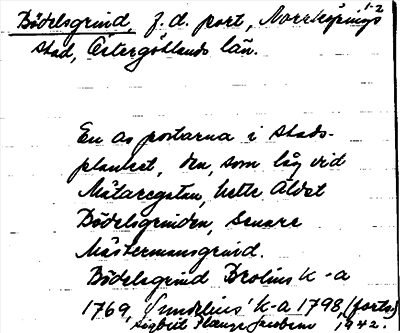 1-2
Bödelsgrind, f.d. port, Norrköpings
stad, Östergötlands län.
En av portarna i stads-
planket, den, som låg vid
Mätaregatan, hette äldst
Bödelsgrinden, senare
Mästermansgrind.
Bödelsgrind Brolins k-a
1769, Sundelius' k-a 1798, (forts)
Sigurd 1942.